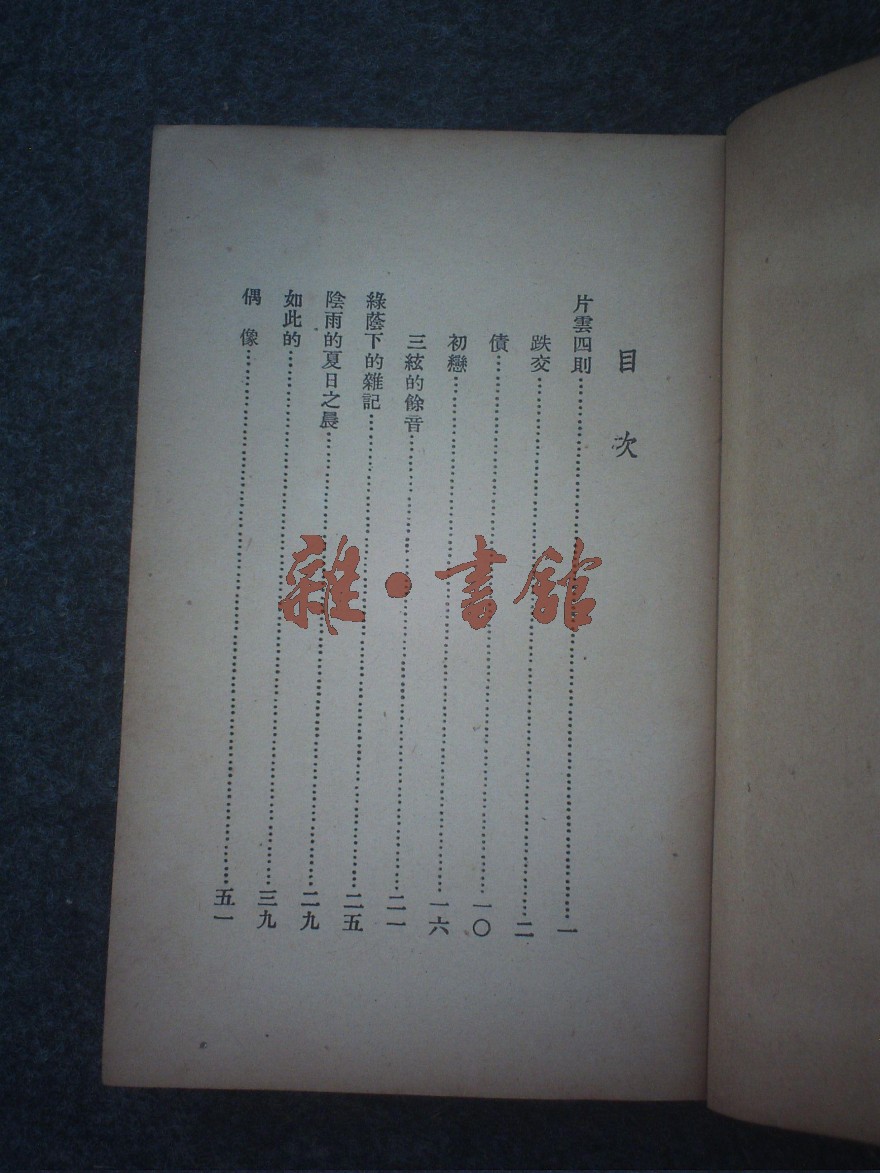 目次
片雲四則……一
跌交……二
債……一〇
初戀……一六
三絃的餘音……二一
綠蔭下的雜記……二五
陰雨的夏日之晨……二九
如此的……三九
偶像……五一
雜·書館